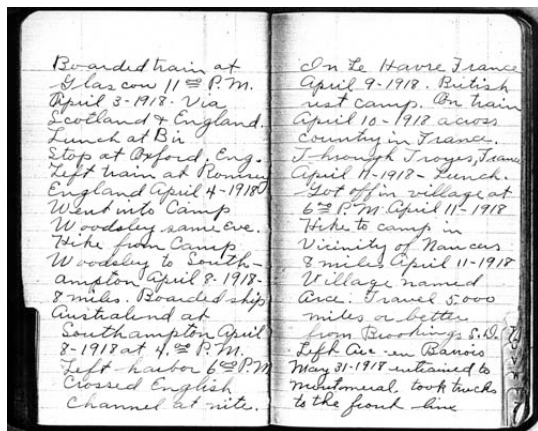 Boarded train at
Glascow 11 00 P.M.
April 3-1918. Via
Scotland & England.
Lunch at Bir
Stop at Oxford. Eng.
Left train at Romsey
England April 4-1918
Went into Camp
Woodsley same Eve.
Hike from Camp
Woodsley to South-
ampton April 8-1918-
8 miles. Boarded ship
Australend at
Southampton April
8-1918 at 4 00 P.M.
Left harbor 6 00 P.M
Crossed English
Channel at nite.
In Le Havre France
April 9-1918. British
rest camp. On train
April 10-1918 across
country in France.
Through Troyes, France
April 11-1918- Lunch.
Got off in village at
6 00 P.M. April 11-1918
Hike to camp in
Vicinity of
8 miles April 11-1918
Village named
Arc. Travel 5,000
miles or better
from Brookings S.D.
Left Arc-en Barrois
May 31-1918 entrained to
took trucks
to the front line